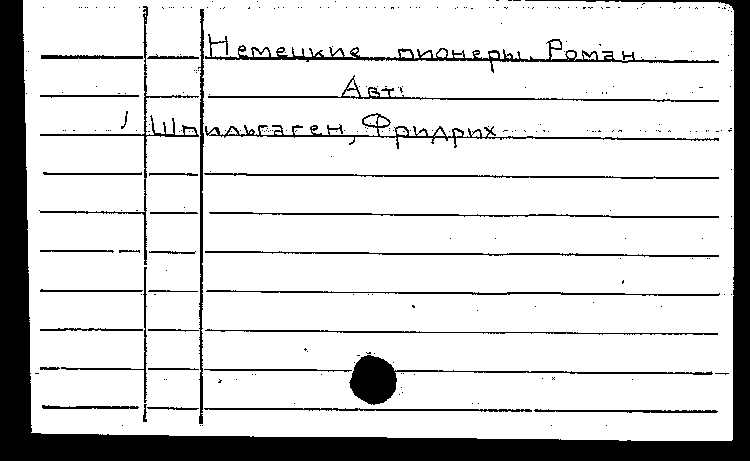 Немецкие пионеры. Роман
Авт:
Шпильгаген, Фридрих